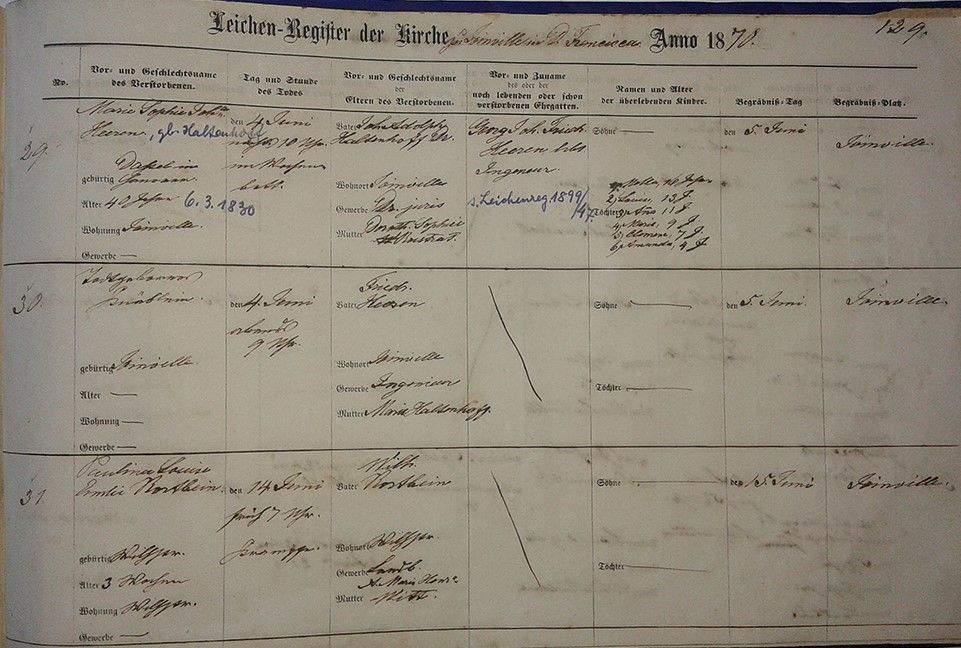 129.
Leichen-Register der Kirche zu Joinville in D. Francisca Anno 1878.
No.
Vor- und Geschlechtsname
des Verstorbenen.
Tag und Stunde
des Todes
Vor- und Geschlechtsname
der
Eltern des Verstorbenen.
Vor- und Zuname
des oder der
noch lebenden oder schon
verstorbenen Ehegatten.
Namen und Alter
der überlebenden Kinder.
Begräbniß-Tag
Begräbniß-Platz.
29.
Marie Sophie Joh.
Heeren, gb. Haltenhoff
gebürtig Dassel in
Hannover.
Alter 48 Jahre 6.3.1830
Wohnung Joinville.
Gewerbe —
den 4 Juni
nachts 10 Uhr.
im Wochen
bett.
Vater Joh. Adolph
Haltenhoff Dr.
Wohnort Joinville
Gewerbe Dr. juris
Mutter Doroth. Sophie
Georg Joh. Friedr.
Heeren
Ingenieur
s. Leichenreg 1899/
/47
Söhne —
Töchter
2, Louise, 13 J
11 J
4, Marie, 9 J
5, Clement, 7 J
6, Amanda, 4 J
den 5. Juni
Joinville.
30.
Todtgeborenes
Knäblein.
gebürtig Joinville
Alter —
Wohnung —
Gewerbe —
den 4. Juni
abends
9 Uhr.
Friedr.
Vater Heeren
Wohnort Joinville
Gewerbe Ingenieur
Mutter Marie Haltenhoff.
Söhne —
Töchter —
den 5. Juni
Joinville.
31
Pauline Louise
Emilie Northein.
gebürtig
Alter 3 Wochen
Wohnung
Gewerbe —
den 14 Juni
früh 7 Uhr.
Krämpfe.
Wilh.
Vater Northein
Wohnort
Gewerbe Landb.
Mutter Witt.
Söhne —
Töchter —
den 15 Juni
Joinville.